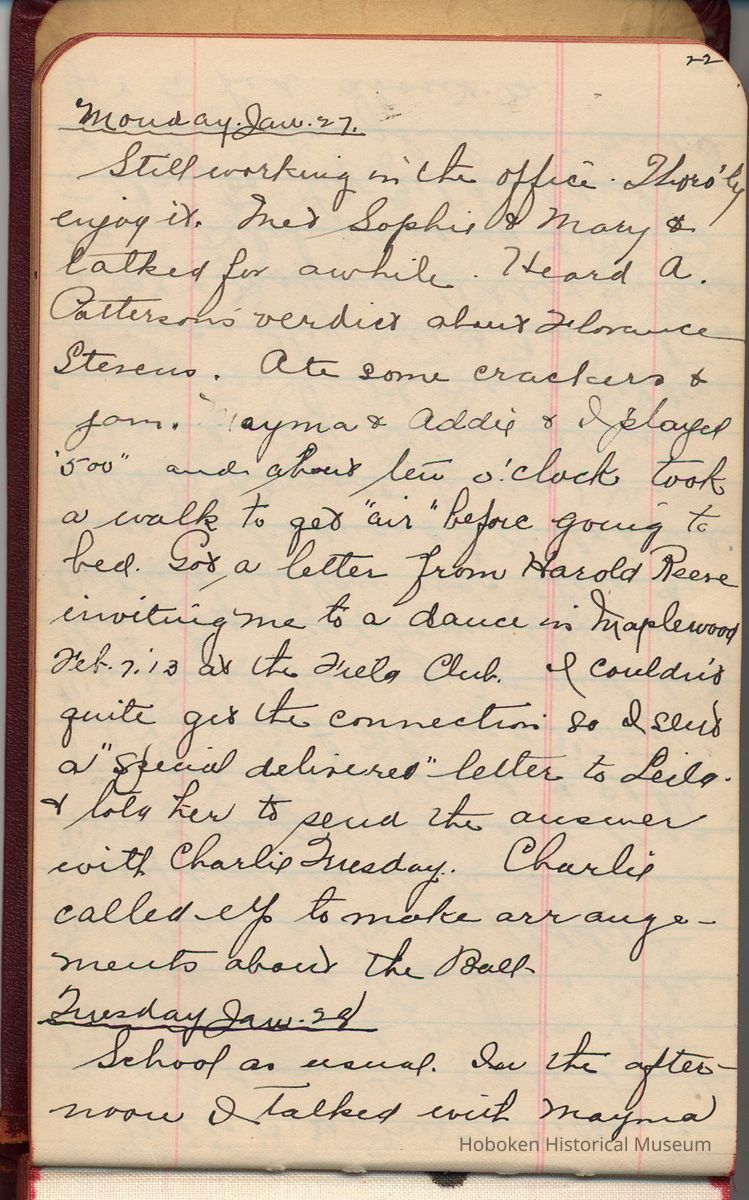 22
Monday. Jan. 27.
Still working in the office. Thoro'ly
enjoy it. Met Sophie & Mary &
talked for awhile. Heard A.
Patterson's verdict about Florance
Stevens. Ate some crackers &
jam. Mayma & Addie & I played
"500" and about ten o'clock took
a walk to get "air" before going to
bed. Got a letter from Harold Reeve
inviting me to a dance in Maplewood
Feb. 7.'13 at the Field Club. I couldn't
quite get the connection so I sent
a "special delivered" letter to Leila.
& told her to send the answer
with Charlie Tuesday. Charlie
called up to make arrange-
ments about the Ball
Tuesday Jan. 28
School as usual. In the after-
noon I talked with Mayma
Hoboken Historical Museum